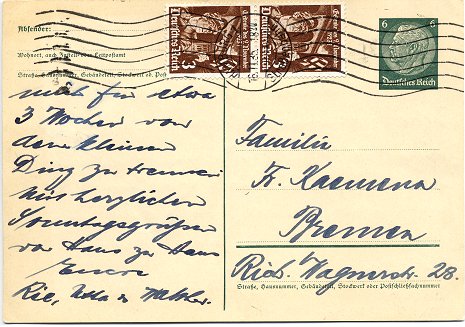 Absender:
Wohnort, auch Zustell- oder Leitpostamt
Straße, Hausnummer, Gebäudeteil, Stockwerk od. Post
mich für etwa
3 Wochen von
dem kleinen
Ding zu trennen.
Mit herzlichen
Sonntagsgrüßen
von Haus zu Haus
Eure
Rie, Utta u Walther.
3
Deutsches Reich
3
Deutsches Reich
6
6
Deutsches Reich
Familie
Fr. Kaemena
Bremen
Rich. Wagnerstr. 28.
Straße, Hausnummer, Gebäudeteil, Stockwerk oder Postschließfachnummer